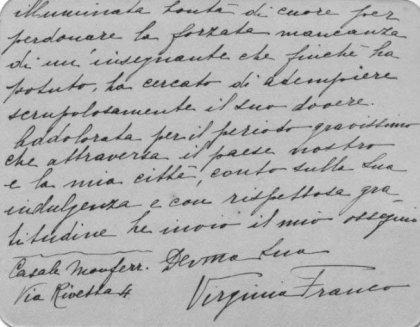 illuminata bontà di cuore per
perdonare la forzata mancanza
di un'insegnante che finchè ha
potuto, ha cercato di adempiere
scrupolosamente il suo dovere.
Addolorata per il periodo gravissimo
che attraversa il paese nostro
e la mia città, conto sulla Sua
indulgenza e con rispettosa gra-
titudine Le invio il mio ossequio
Casale Monferr. Dev.ma Sua
Via Rivetta 4 Virginia Franco